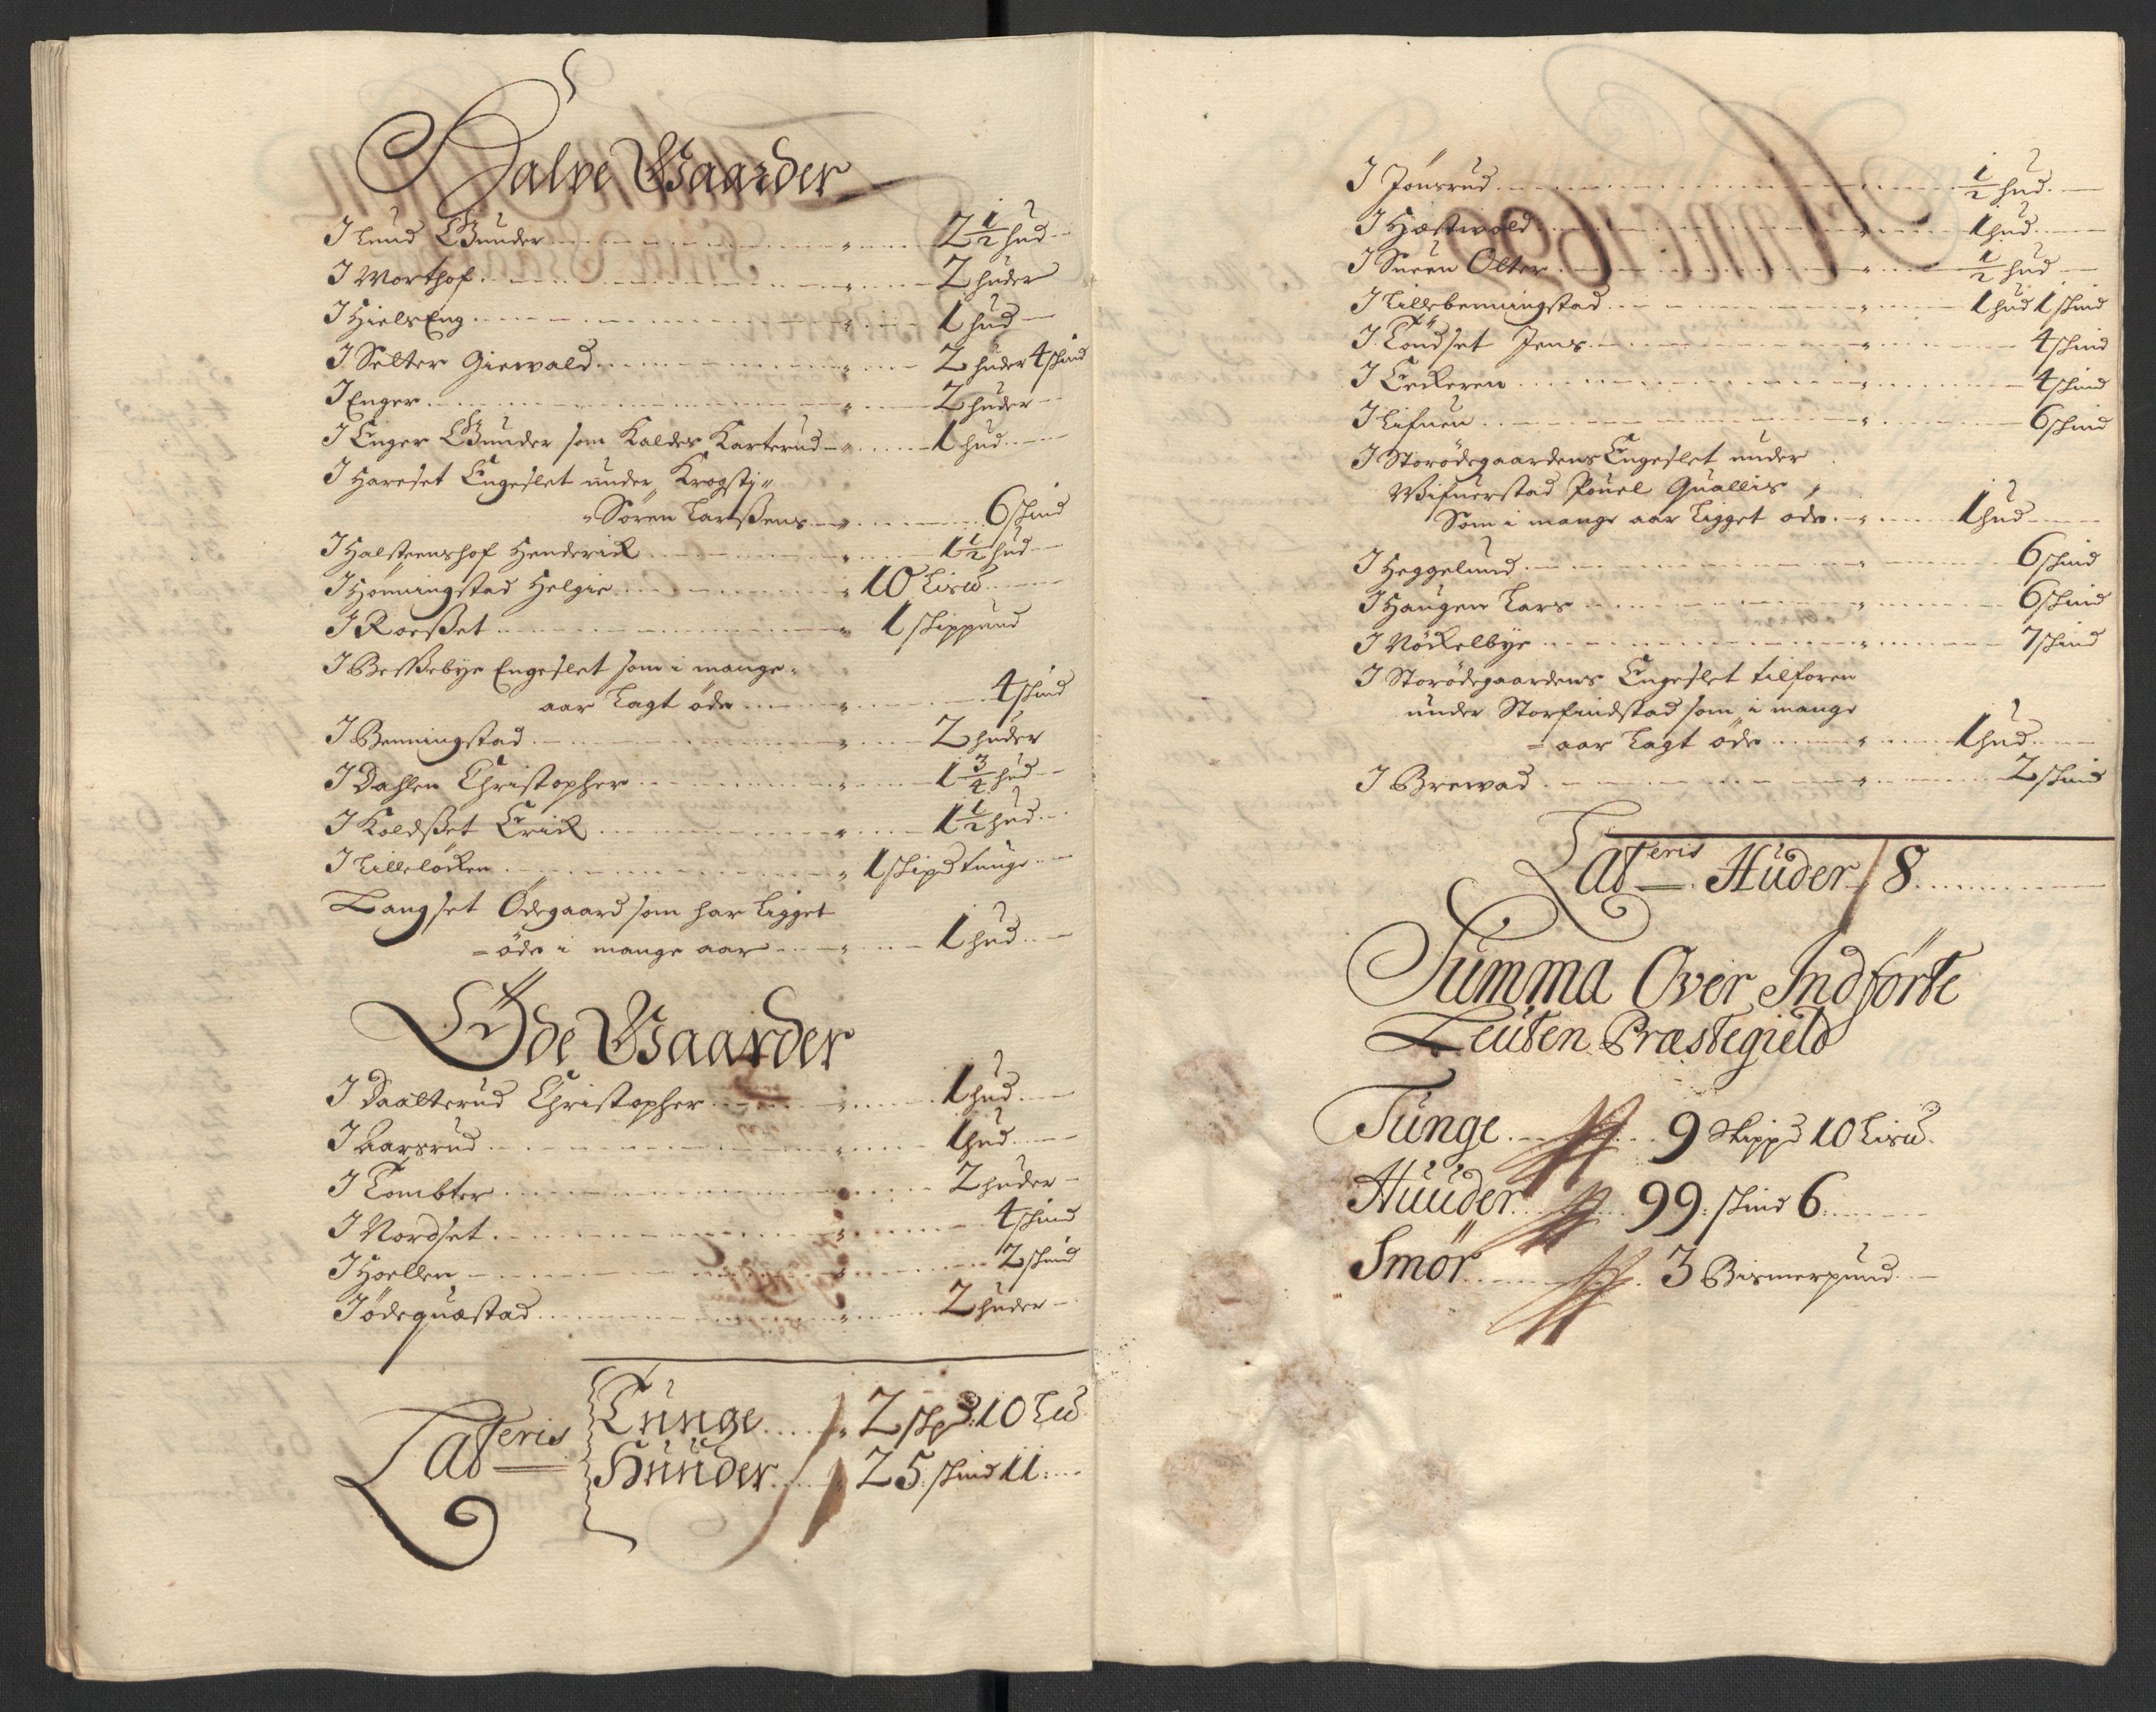 Halve Gaarder
I Lund Gunder 2 1/2 hud
I Morthof 2 huder
I HielsEng 1 hud
I Selter Giewald 2 huder 4 skind
I Enger 2 huder
I Enger Gunder som Kaldes Karterud 1 hud
I Hareset Engeslet under Krogsti
Sören Larßens 6 skind
I Halsteenshof Henderick 1 1/2 hud
I Hommingstad Helgie 10 Lisu
I Roeßet 1 skippund
I Beßebye Engeslet som i mange
aar Lagt öde 4 skind
I Benningstad 2 huder
I Dahlen Christopher 1 3/4 hud
I Koldßet Erick 1 1/2 hud
I Lillelöcken 1 skipd tunge
Langset Ödegaard som har Ligget
öde i mange aar 1 hud
Öde Gaarder
I Daalterud Christopher 1 hud
I Aarsrud 1 hud
I Tombter 2 huder
I Nordset 4 skind
I Hoellen 2 skind
I ödequæstad 2 huder
Lateris Tunge 2 skpd 10 Lu
Huuder 25 skind 11
I Jönsrud 1/2 hud
I Hæstwold 1 hud
I Sneen Olter 1/2 hud
I Lillebenningstad 1 hud 1 skind
I Töndset Jens 4 skind
I Leckeren 4 skind
I Lisuen 6 skind
I Storödegaardens Engeslet under
Wifuerstad Pouel Quallis
Som i mange aar Ligget öde 1 hud
I Heggelund 6 skind
I Haugen Lars 6 skind
I Nöckelbye 7 skind
I Storödegaardens Engeslet tilforen
under Storfindstad som i mange
aar Lagt öde 1 hud
I Brewad 2 skind
Lateris Huder 8
Summa Over Indförte
Leuten Præstegield
Tunge 9 Skippd 10 Lisu
Huuder 99 skind 6
Smör 3 Bismerpund